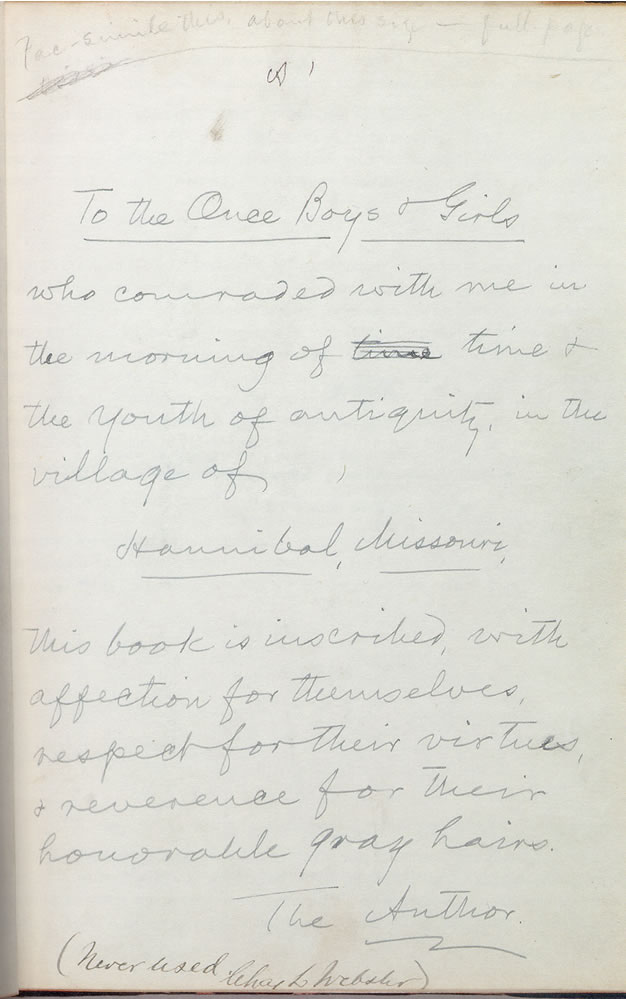 Fac-simile this, about this size — full page.
To the Once Boys & Girls
who comraded with me in
the morning of time time &
the youth of antiquity, in the
village of
Hannibal, Missouri,
this book is inscribed, with
affection for themselves,
respect for their virtues,
& reverence for their
honorable gray hairs.
The Author.
(Never used Chas L Webster)